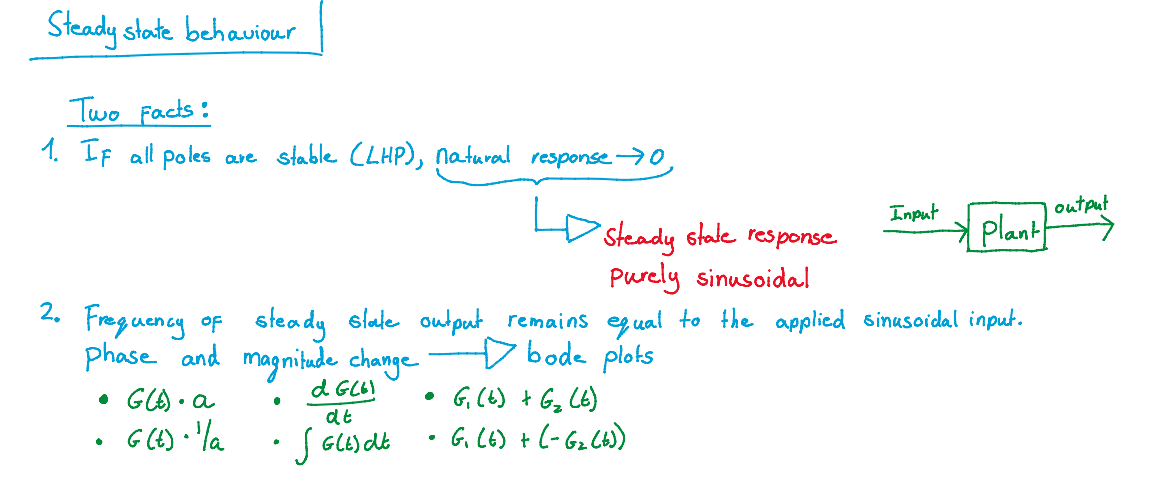 Steady state behaviour
Two Facts:
1. If all poles are stable (LHP), natural response → 0,
Input
Plant
output
Steady state response
Purely sinusoidal
2. Frequency of steady state output remains equal to the applied sinusoidal input.
Phase and magnitude change → bode plots
• G(t) · a • dG(t)/dt • G₁(t) + G₂(t)
• G(t) · 1/a • ∫ G(t) dt • G₁(t) + (-G₂(t))